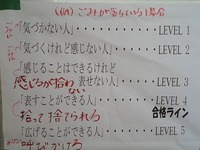 (例)ごみが落ちている場合
「気づかない人」 LEVEL 1
「気づくけれど感じない人」 LEVEL 2
「感じることはできるけれど
表せない人」 LEVEL 3
感じるが拾わない
「表すことができる人」 LEVEL 4
拾って捨てられる
合格ライン
「広げることができる人」 LEVEL 5
呼びかける